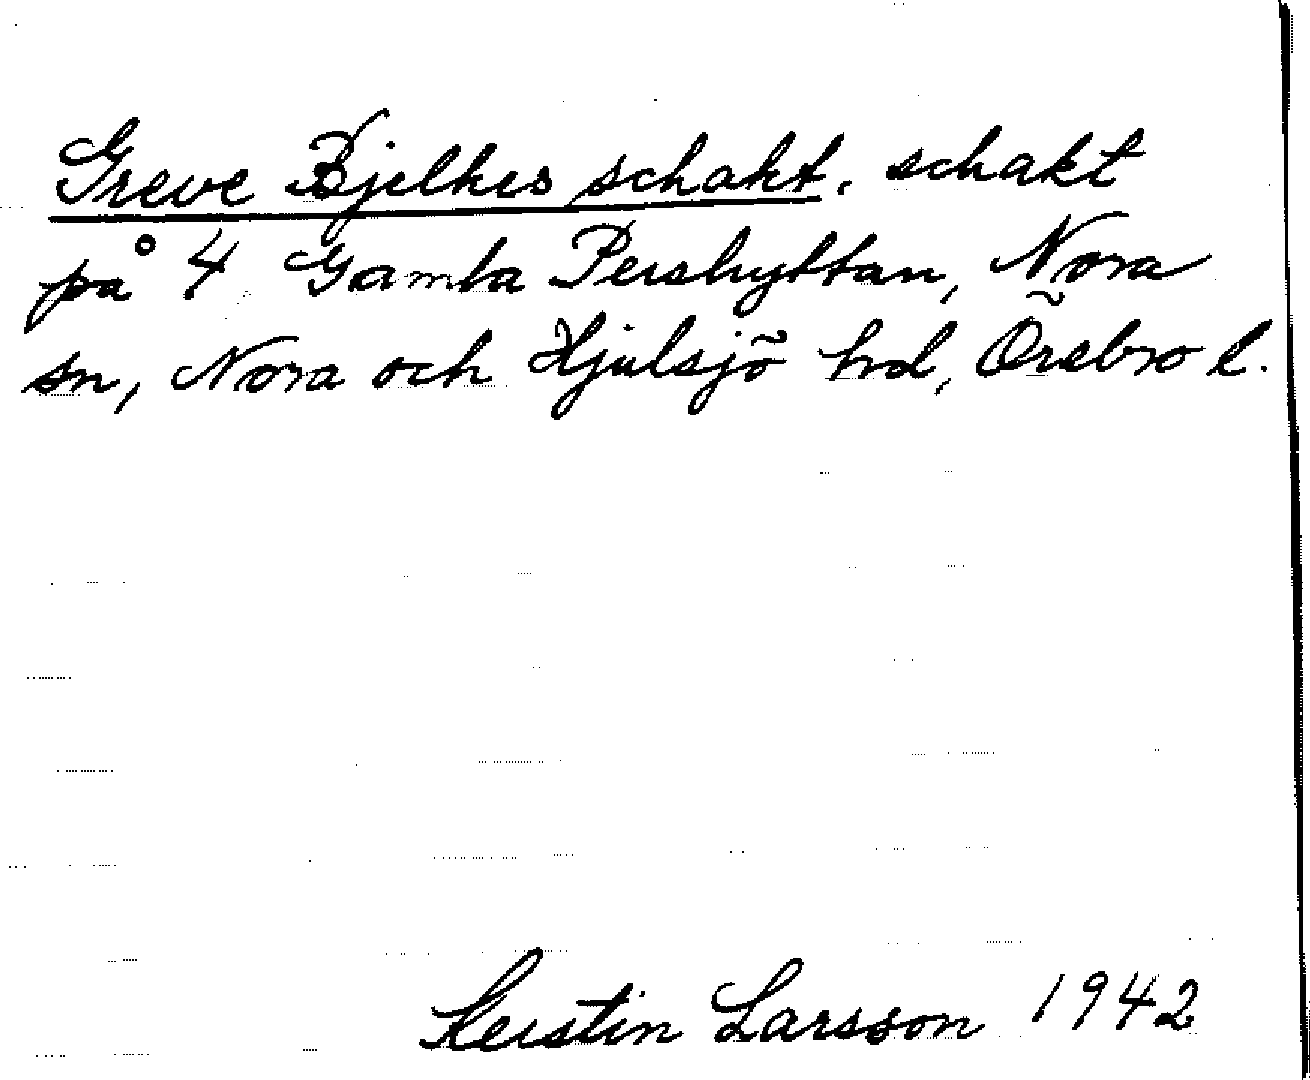 Greve Bjelkes schakt, schakt
på 4 Gamla Pershyttan, Nora
sn, Nora och Hjulsjö hrd, Örebro l.
Kerstin Larsson 1942